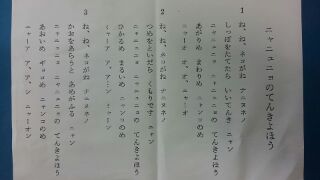 ニャニュニョのてんきよほう
1
ね、ね、ネコがね ナニヌネノ
しっぽをたてたら いいてんき ニャン
ニャニュニョ ニャニュニョの てんきよほう
あがりめ まわりめ ニャンコのめ
ニャーオ ア、オ、ニャーオ
2
ね、ね、ネコがね ナニヌネノ
つめをといだら くもりです ニャン
ニャニュニョ ニャニュニョの てんきよほう
ひかるめ まるいめ ニャンコのめ
ニャーン ア、アーン ニャーン
3
ね、ね、ネコがね ナニヌネノ
かおをあらうと あめがふる ニャン
ニャニュニョ ニャニュニョの てんきよほう
あおいめ ギョロめ ニャンコのめ
ニャーア ア、ア、ニャーア